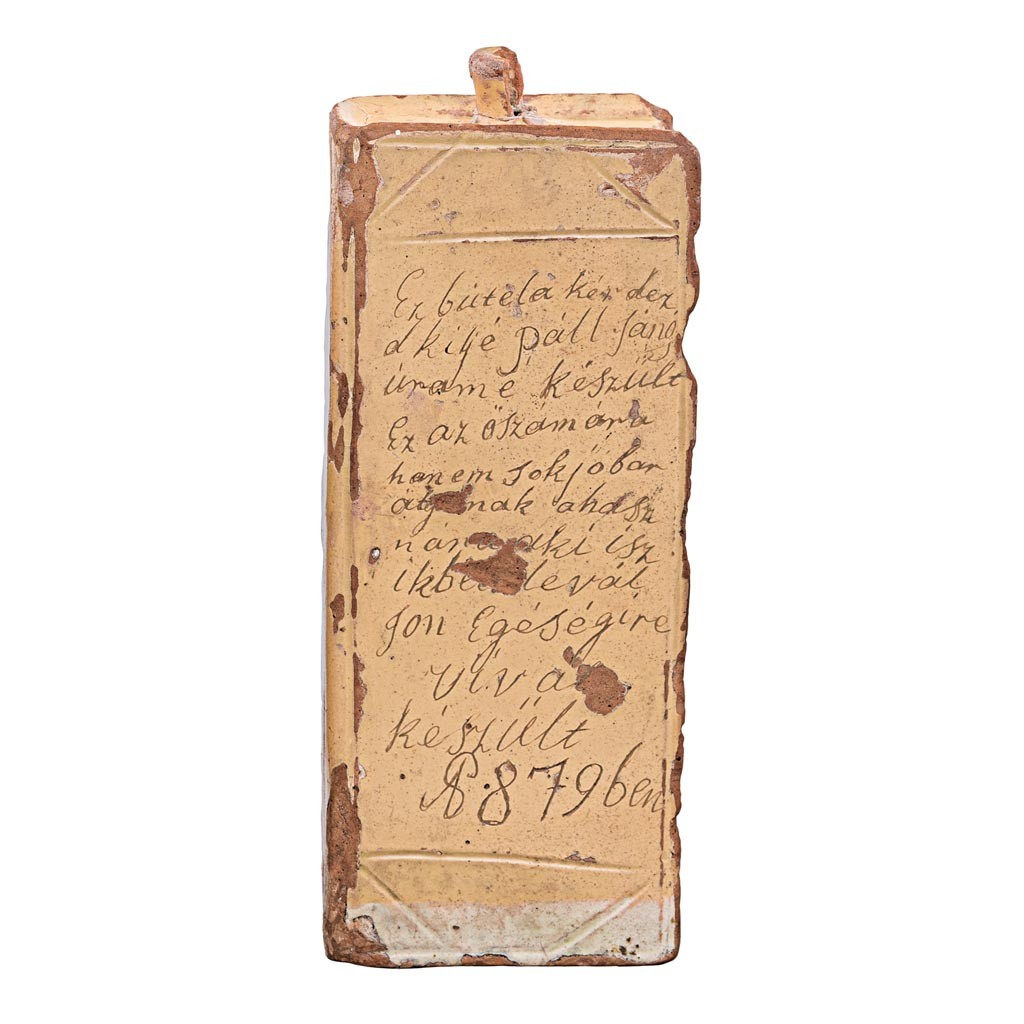 Ez bútela kér dez
d kijé páll Jáno
s
úramé készûlt
Ez az őszámára
hanem sokjóbar
nak ahasz
aki isz
levál
jon Egéségire
készûlt
8 7 9 ben